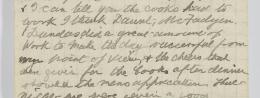 & I can tell you the cooks had to
work I think Daunt, McFadyen
& Dundas did a great amount of
work to make the day successful from
my point of view, & the cheers that
were given for the Cooks after dinner
showed the mens appreciation. The
were given a